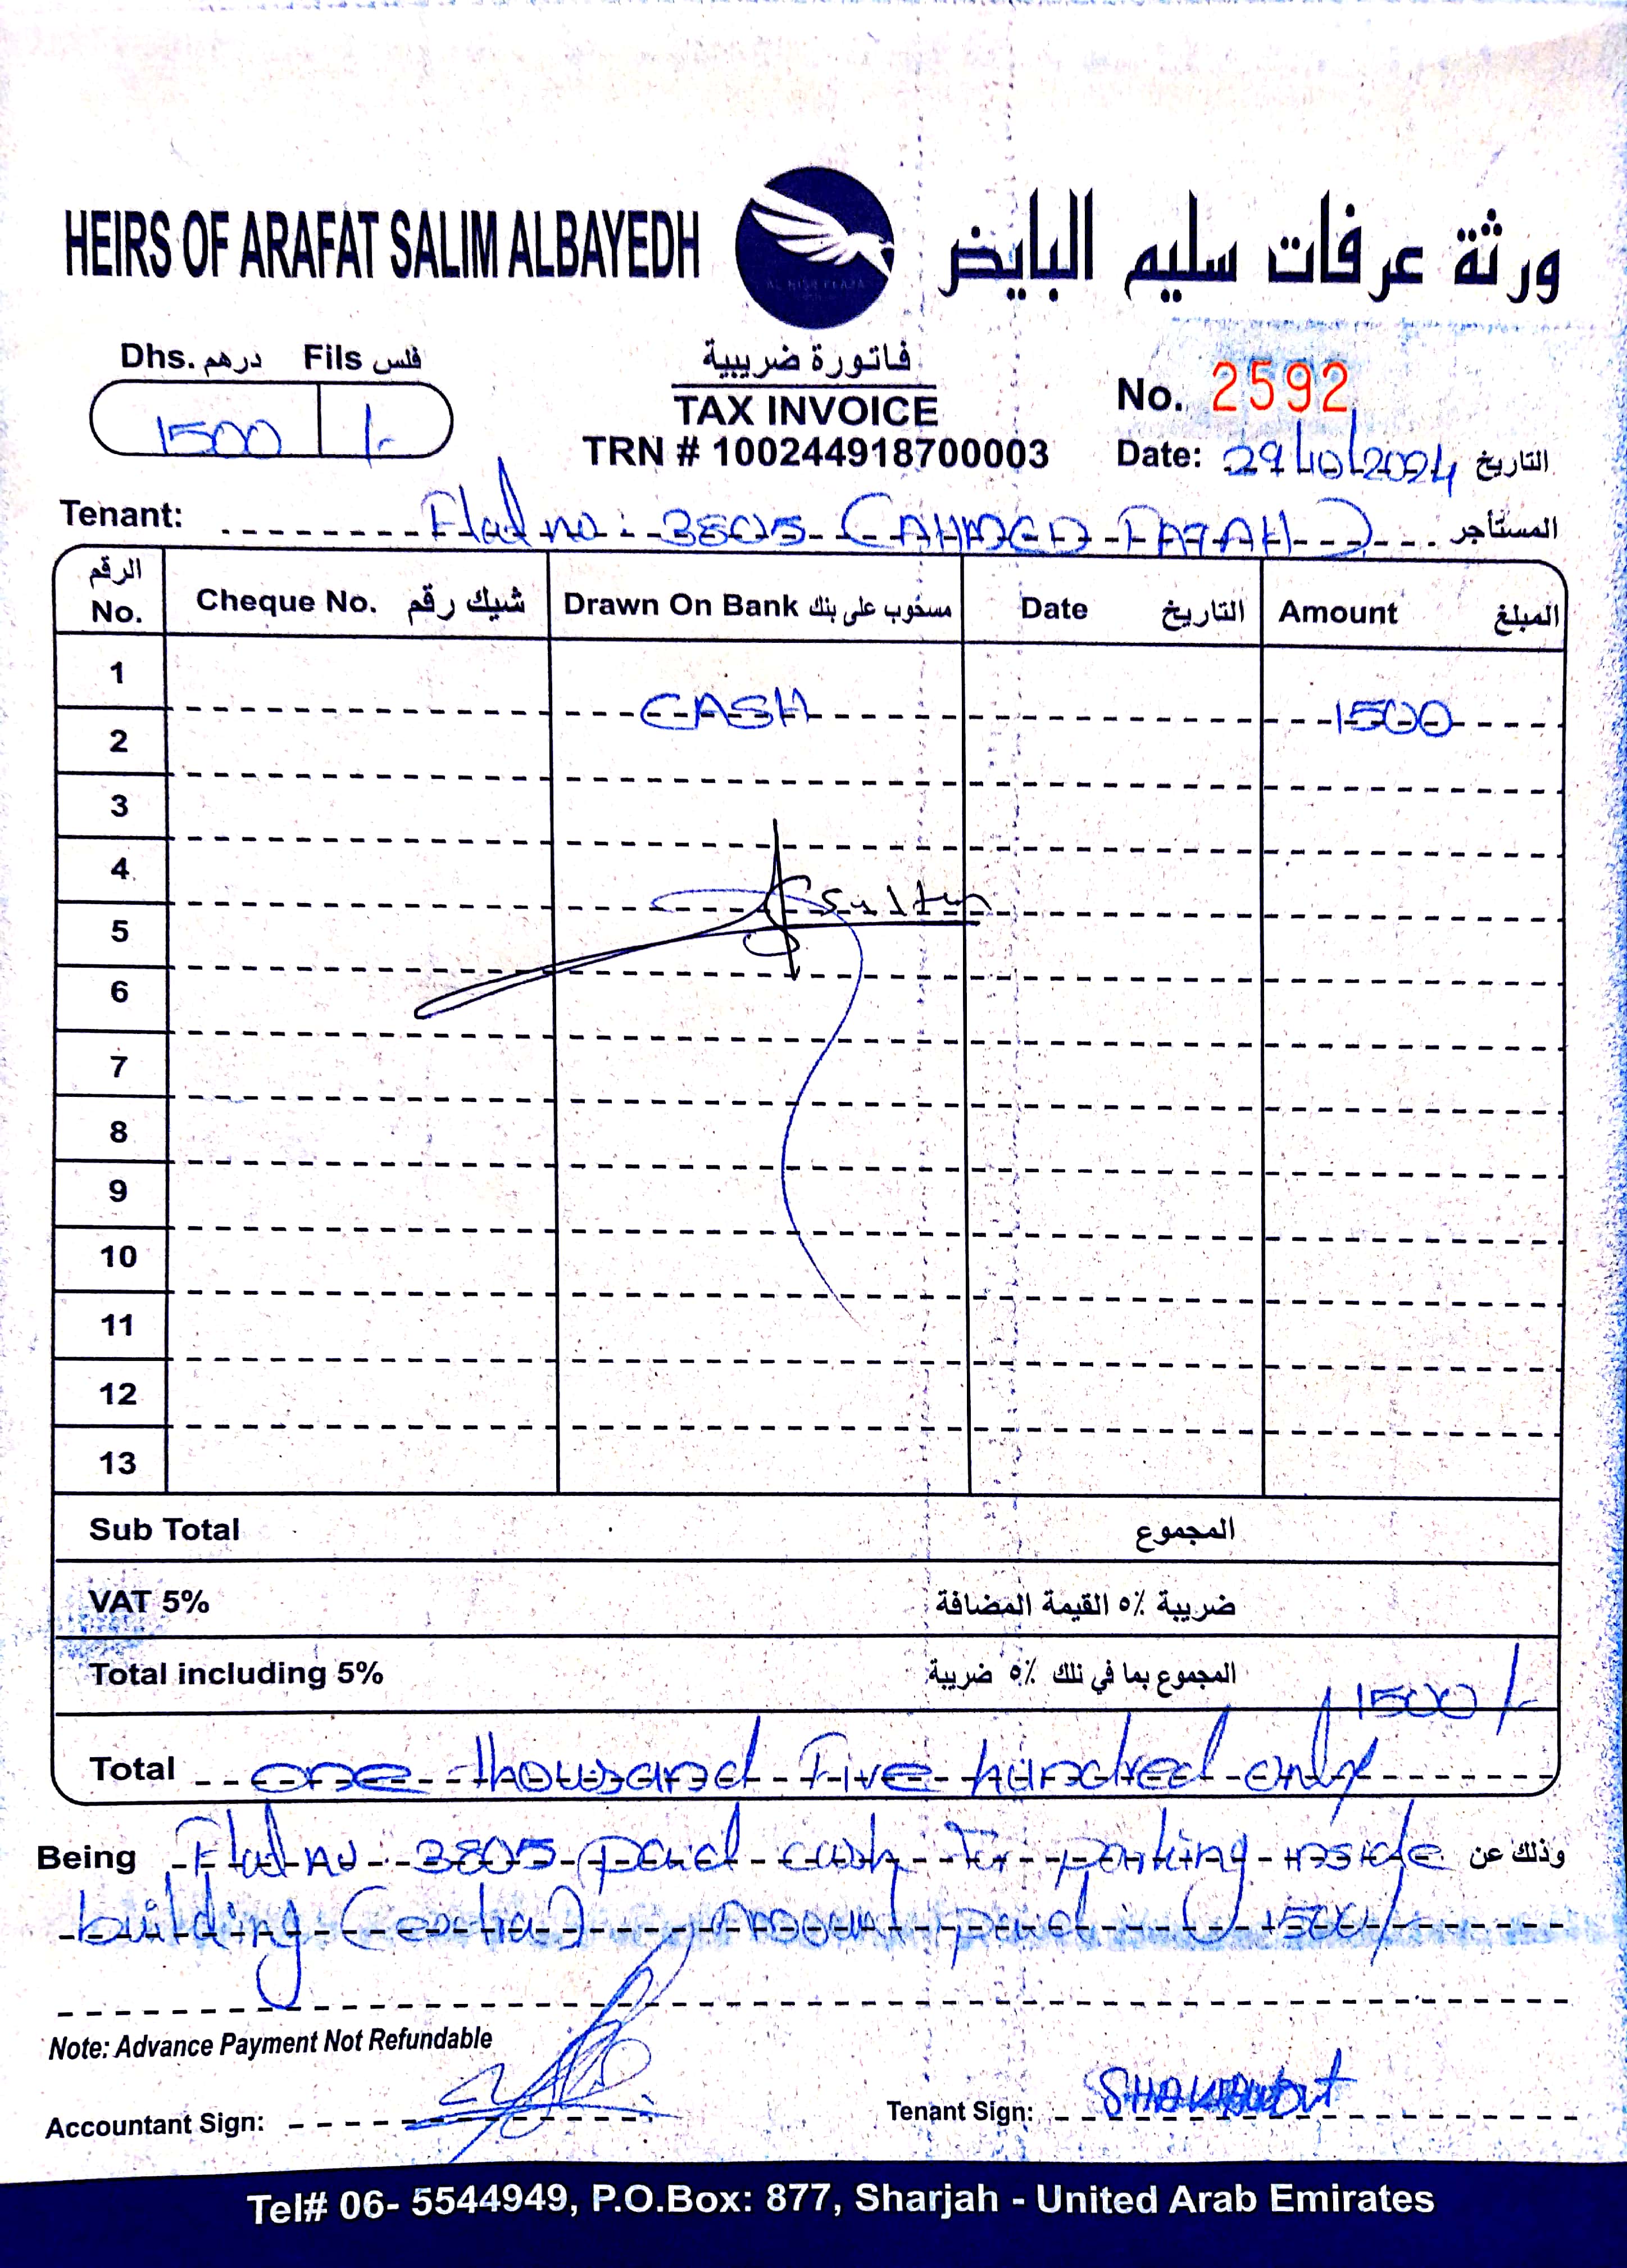 HEIRS OF ARAFAT SALIM ALBAYEDH
ورثة عرفات سليم البايض
AL NISR PLAZA
Dhs. درهم Fils فلس
1500 /-
فاتورة ضريبية
TAX INVOICE
TRN # 100244918700003
No. 2592
Date: 29/10/2024 التاريخ
Tenant: Flat no: 3805 (AHMED FATAH) المستأجر
الرقم No. Cheque No. شيك رقم Drawn On Bank مسحوب على بنك Date التاريخ Amount المبلغ
1
CASH 1500
2
3
4
Sultan
5
6
7
8
9
10
11
12
13
Sub Total المجموع
VAT 5% ضريبة ٥٪ القيمة المضافة
Total including 5% المجموع بما في ذلك ٥٪ ضريبة 1500/-
Total one thousand Five hundred only
Being Flat no 3805 paid cash for parking inside وذلك عن
building (extra) Amount paid : 1500/
Note: Advance Payment Not Refundable
Accountant Sign:
Tenant Sign:
Tel# 06- 5544949, P.O.Box: 877, Sharjah - United Arab Emirates